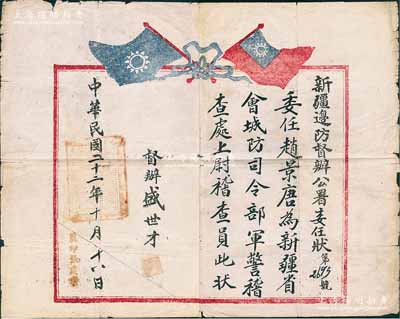 新疆邊防督辦公署委任狀第2693號
委任趙景唐為新疆省
會城防司令部軍警稽
查處上尉稽查員此狀
督辦盛世才
中華民國二十二年十月十八日